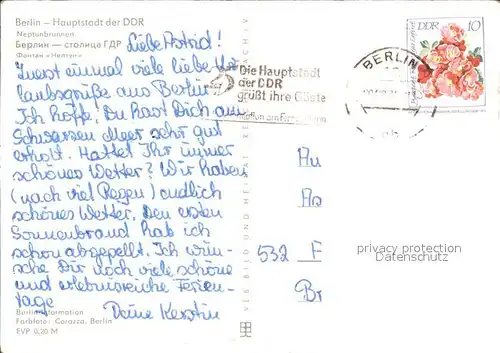 Berlin – Hauptstadt der DDR
Neptunbrunnen
Берлин — столица ГДР
Фонтан «Нептун»
Liebe Astrid!
Zuerst einmal viele liebe Ur-
laubsgrüße aus Berlin.
Ich hoffe, Du hast Dich am
Schwarzen Meer sehr gut
erholt. Hattet Ihr immer
schönes Wetter? Wir haben
(nach viel Regen) endlich
schönes Wetter. Den ersten
Sonnenbrand hab ich
schon abgepellt. Ich wün-
sche Dir noch viele schöne
und erlebnisreiche Ferien-
tage
Deine Kerstin
Berlin-Information
Farbfoto: Corazza, Berlin
EVP 0,20 M
VEB BILD UND HEIMAT
Die Hauptstadt
der DDR
grüßt ihre Gäste
Treffpunkt am Fernsehturm
BERLIN
DDR
10
An
As
532 F
Br
privacy protection
Datenschutz